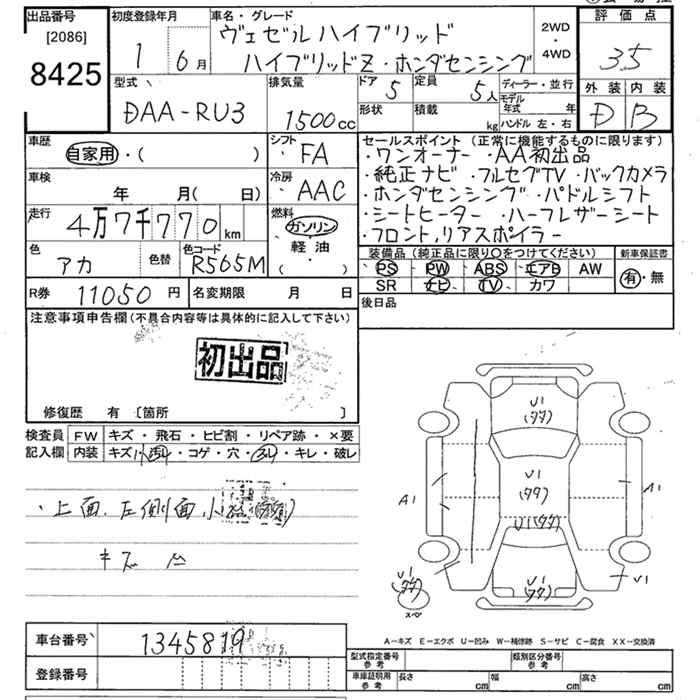 出品番号
[2086]
8425
初度登録年月
1 6月
車名・グレード
ヴェゼル ハイブリッド
ハイブリッドZ・ホンダセンシング
2WD
・
4WD
評価点
3.5
外装 内装
D B
型式
DAA-RU3
排気量
1500cc
ドア
5
定員
5人
形状
積載
kg
ディーラー・並行
モデル年式 年
ハンドル 左・右
車歴
自家用・( )
シフト
・FA
車検
年 月(日)
冷房
・AAC
走行
4万7千770km
燃料
ガソリン
軽油
・( )
色
アカ
色替
色コード
R565M
セールスポイント (正常に機能するものに限ります)
・ワンオーナー ・AA初出品
・純正ナビ・フルセグTV・バックカメラ
・ホンダセンシング・パドルシフト
・シートヒーター・ハーフレザーシート
・フロント,リアスポイラー
装備品(純正品に限り〇をつけてください)
PS PW ABS エアB AW
SR ナビ TV カワ
新車保証書
有・無
R券 11050円
名変期限 月 日
後日品
注意事項申告欄(不具合内容等は具体的に記入して下さい)
初出品
修復歴 有 [箇所 ]
検査員
記入欄
FW キズ・飛石・ヒビ割・リペア跡・×要
内装 キズ・汚レ・コゲ・穴・スレ・キレ・破レ
・上面.左側面小
キズ 凹
U1
(タタ)
U1
(タタ)
U1(タタ)
U1
(タタ)
A1
A1
U1
U1
(タタ)
スペア
A-キズ E-エクボ U-凹み W-補修跡 S-サビ C-腐食 XX-交換済
車台番号 1345819
登録番号
型式指定番号
参考
類別区分番号
参考
車庫証明用
参考
長さ cm
幅 cm
高さ cm